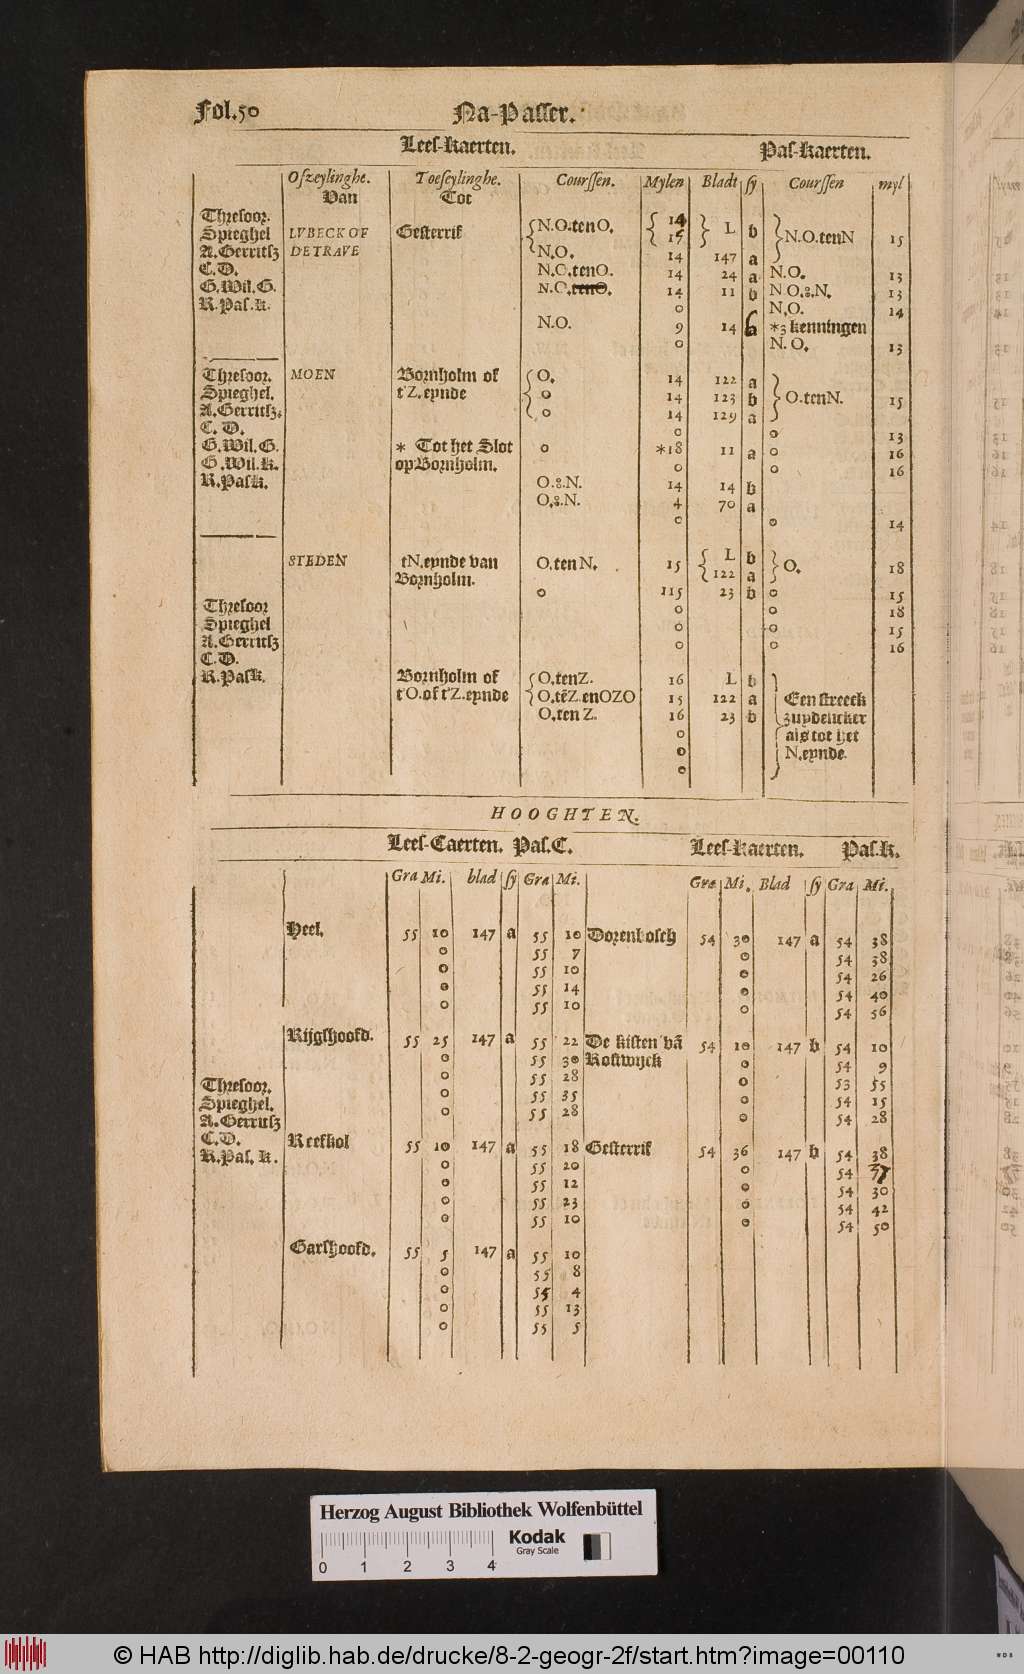 Fol.50 Na-Passer.
Lees-kaerten. Pas-kaerten.
Ofzeylinghe. Toeseylinghe. Courssen. Mylen Bladt sy Courssen myl
Van Tot
Thresoor. 14
Spieghel LVBECK OF Gesterrif N.O.ten O. 15 L b N.O.tenN 15
A.Gerritsz DE TRAVE N.O. 14 147 a
C.D. N.O.tenO. 14 24 a N.O. 13
G.Wil.G. N.O.tenO. 14 11 b N O.&.N. 13
R.Pas.k. o N.O. 14
N.O. 9 14 a *3 kenningen
o N.O. 13
Thresoor. MOEN Bornholm of O. 14 122 a
Spieghel. t'Z.eynde o 14 123 b O.tenN. 15
A.Gerritsz. o 14 129 a
C.D. o o 13
G.Wil.G. * Tot het Slot o *18 11 a o 16
G.Wil.k. op Bornholm. o o 16
R.Pask. O.&.N. 14 14 b
O.&.N. 4 70 a
o o 14
STEDEN tN.eynde van O.ten N. 15 L b O. 18
Bornholm. 122 a
o 115 23 b o 15
Thresoor o o 18
Spieghel o o 15
A.Gerritsz o o 16
C.D.
R.Pask. Bornholm of O.tenZ. 16 L b
t'O.of t'Z.eynde O.tẽZ.enOZO 15 122 a Een streeck
O.ten Z. 16 23 b zuydelicker
o als tot het
o N.eynde.
o
HOOGHTEN.
Lees-Caerten. Pas.C. Lees-kaerten. Pas.k.
Gra Mi. blad sy Gra Mi. Gra Mi. Blad sy Gra Mi.
Heel. 55 10 147 a 55 10 Dorenbosch 54 30 147 a 54 38
o 55 7 o 54 38
o 55 10 o 54 26
o 55 14 o 54 40
o 55 10 o 54 56
Rijgshoofd. 55 25 147 a 55 22 De kisten vã 54 10 147 b 54 10
o 55 30 Rostwijck o 54 9
Thresoor. o 55 28 o 53 55
Spieghel. o 55 35 o 54 15
A.Gerritsz o 55 28 o 54 28
C.D. Reefkol 55 10 147 a 55 18 Gesterrif 54 36 147 b 54 38
R.Pas.k. o 55 20 o 54
o 55 12 o 54 30
o 55 23 o 54 42
o 55 10 o 54 50
Garshoofd. 55 5 147 a 55 10
o 55 8
o 55 4
o 55 13
o 55 5
Herzog August Bibliothek Wolfenbüttel
Kodak
Gray Scale
0 1 2 3 4
© HAB http://diglib.hab.de/drucke/8-2-geogr-2f/start.htm?image=00110